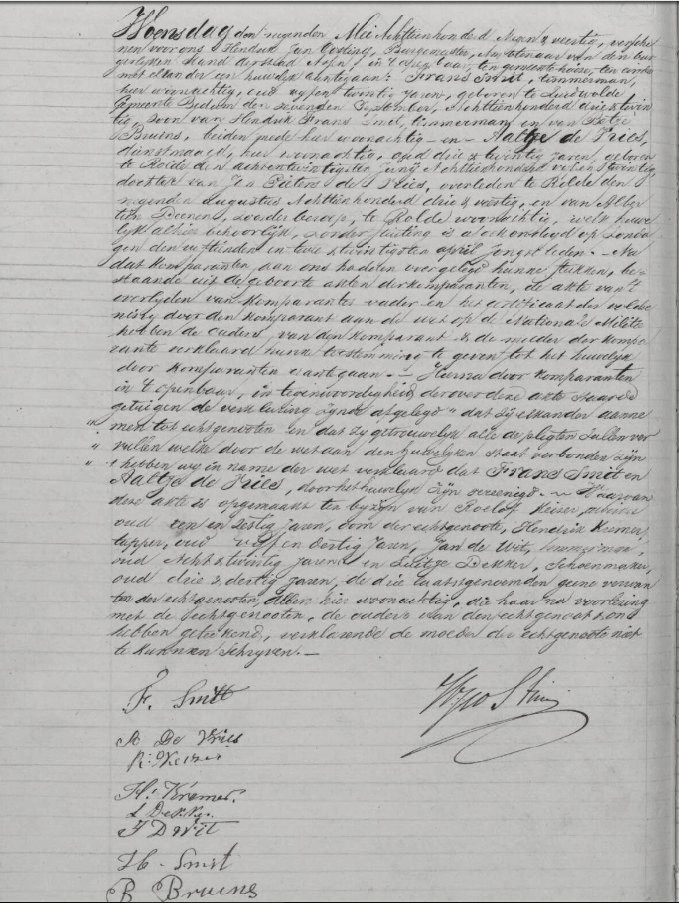 Woensdag den negenden Mei Achttienhonderd Negen & veertig, versche-
nen voor ons Hendrik Jan Oosting, Burgemeester, Ambtenaar van den bur-
gerlijken Stand der stad Assen, in 't openbaar, ten gemeentehuize, ten einde
met elkander een huwelijk aantegaan: Frans Smit, timmerman,
hier woonachtig, oud vyf en twintig Jaren, geboren te Zuidwolde
Gemeente Bedum den zevenden September, Achttienhonderd drie & twin
tig, zoon van Hendrik Frans Smit, timmerman en van Betje
Bruins, beiden mede hier woonachtig – en – Aaltje de Vries,
dienstmaagd, hier woonachtig, oud drie & twintig Jaren, geboren
te Rolde den achtentwintigsten Juny Achttienhonderd vyf en twintig,
dochter van Jan Pieters de Vries, overleden te Rolde den
negenden Augustus Achttienhonderd drie & veertig, en van Alber
tien zonder beroep, te Rolde woonachtig, welk huwe
lyk alhier behoorlyk, zonder stuiting is afgekondigd op Zonda
gen den vyftienden en twee & twintigsten april jongstleden. – Na
dat komparanten, aan ons hadden overgelegd hunne stukken, be-
staande uit de geboorte akten der komparanten, de akte van 't
overlyden van komparantes vader en het certificaat der voldoe
ning door den komparant aan de wet op de Nationale Militie
hebben de ouders, van den komparant en de moeder der kompa
rante verklaard hunne toestemming te geven tot het huwelyk
door komparanten aantegaan. – Hierna door komparanten
in 't openbaar, in tegenwoordigheid der over deze akte staande
getuigen de verklaring zynde afgelegd " dat zy elkander aanne
" men tot echtgenooten en dat zy getrouwelyk alle de pligten zullen ver
" vullen welke door de wet aan den huwelyken staat verbonden zyn
" hebben wy in name der wet verklaard dat Frans Smit en
Aaltje de Vries, door het huwelyk zyn vereenigd. – Waarvan
deze akte is opgemaakt ten byzyn van Roelof Keiser,
oud een en zestig Jaren, oom der echtgenoote, Hendrik Kremer,
tapper, oud vyf en dertig Jaren, Jan de Wit, timmerman,
oud Acht & twintig Jaren en Luitje Dekker, Schoenmaker,
oud drie & dertig Jaren, de drie laatstgenoemden geene verwan
ten der echtgenooten, allen hier woonachtig, die haar na voorlezing
met de Echtgenooten, de ouders van den echtgenoot & ons
hebben geteekend, verklarende de moeder der echtgenoote niet
te kunnen schryven. –
F. Smit
A De Vries
R: Keiser
H: Kremer.
L Dekker
J D Wit
H - Smit
B Bruins